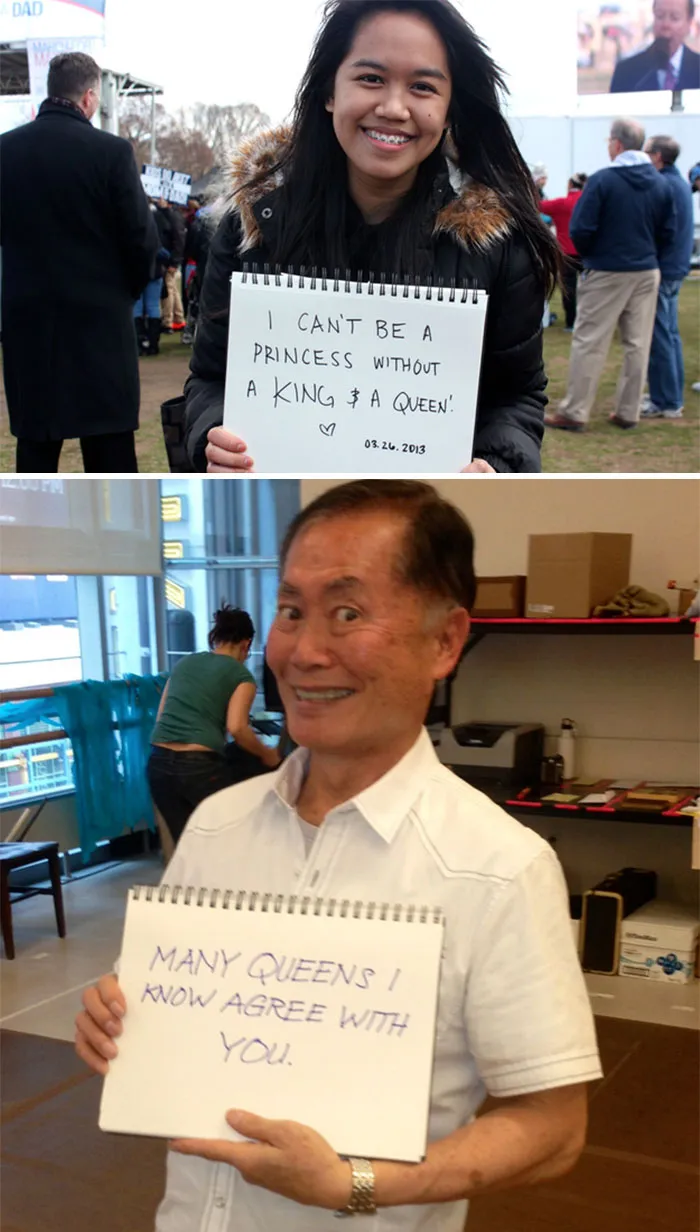 DAD
I CAN'T BE A
PRINCESS WITHOUT
A KING & A QUEEN!
♡
03.26.2013
MANY QUEENS I
KNOW AGREE WITH
YOU.